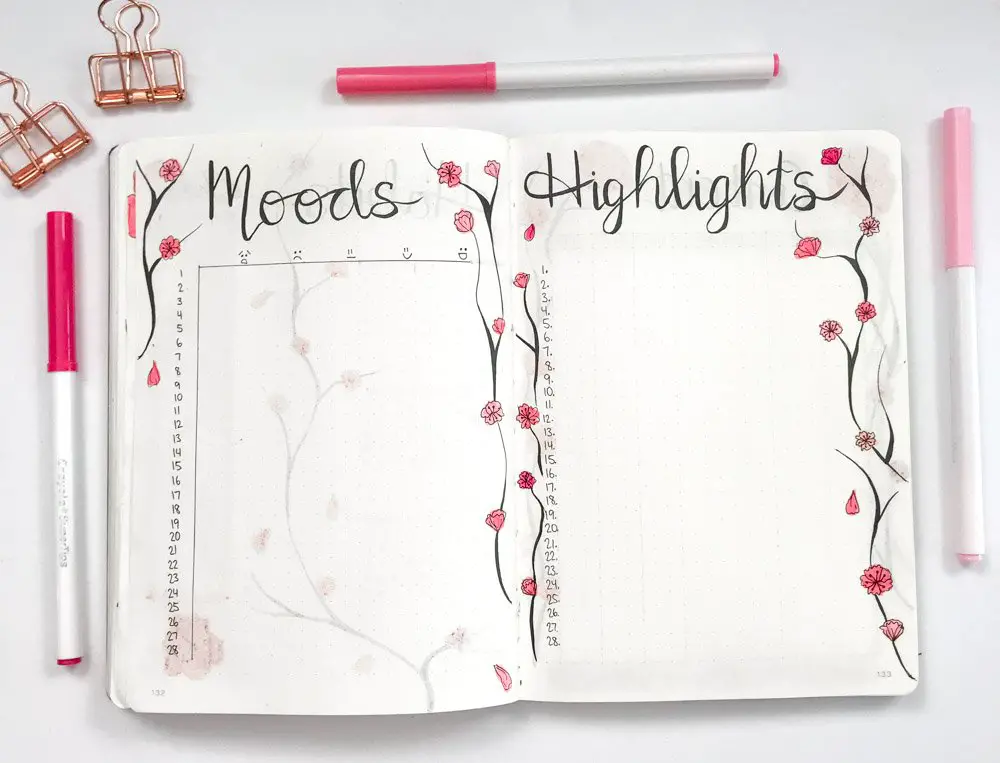 Moods
1
2
3
4
5
6
7
8
9
10
11
12
13
14
15
16
17
18
19
20
21
22
23
24
25
26
27
28
132
Highlights
1.
2.
3.
4.
5.
6.
7.
8.
9.
10.
11.
12.
13.
14.
15.
16.
17.
18.
19.
20.
21.
22.
23.
24.
25.
26.
27.
28.
133